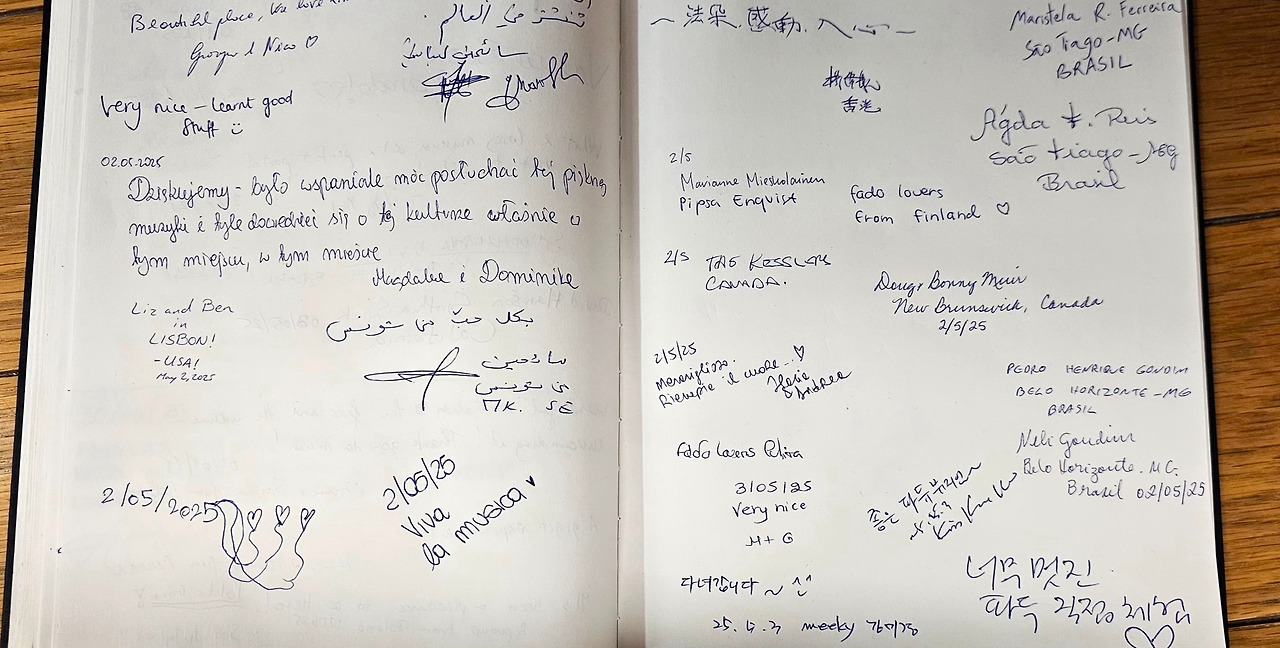 Beautiful place, We love
Giorgia & Nico ♡
Very nice - learnt good
stuff
02.05.2025
Dziękujemy - było wspaniale móc posłuchać tej pięknej
muzyki i tyle dowiedzieć się o tej kulturze właśnie o
tym miejscu, w tym mieście
Magdalena i Dominika
Liz and Ben
in
LISBON!
- USA!
May 2, 2025
بكل حبّ من تونس
سائحين
من تونس
2/05/2025
2/05/25
Viva
la musica
感動 人心
香港
Maristela R. Ferreira
São Tiago - MG
BRASIL
Ágda Reis
São Tiago - MG
Brasil
2/5
Marianne
Pipsa Enqvist
fado lovers
from finland ♡
2/5
THE KESSLERS
CANADA.
Doug & Bonny Muir
New Brunswick, Canada
2/5/25
2/5/25
Meraviglioso.
Riempie il cuore... ♡
Andrea
PEDRO HENRIQUE GONDIM
BELO HORIZONTE - MG
BRASIL
Neli Gondim
Belo Horizonte. MG.
Brasil 02/05/25
Fado Lovers
3/05/25
Very nice
M + G
좋은 파두
다녀갑니다 ~ ^^
25. 5. 3
너무 멋진
파두
♡